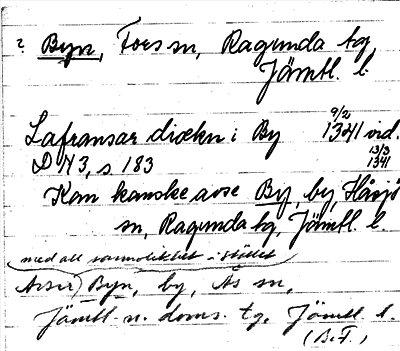 ? Byn, Fors sn, Ragunda tg,
Jämtl. l.
9/2
Lafransar diækn i By 1341 vid.
13/3
DN 3, s 183 1341
Kan kanske avse By, by, Håsjö
sn, Ragunda tg, Jämtl. l.
med all sannolikhet i stället
Avser Byn, by, Ås sn,
Jämtl. n. doms. tg. Jämtl. l.
(B.F.)